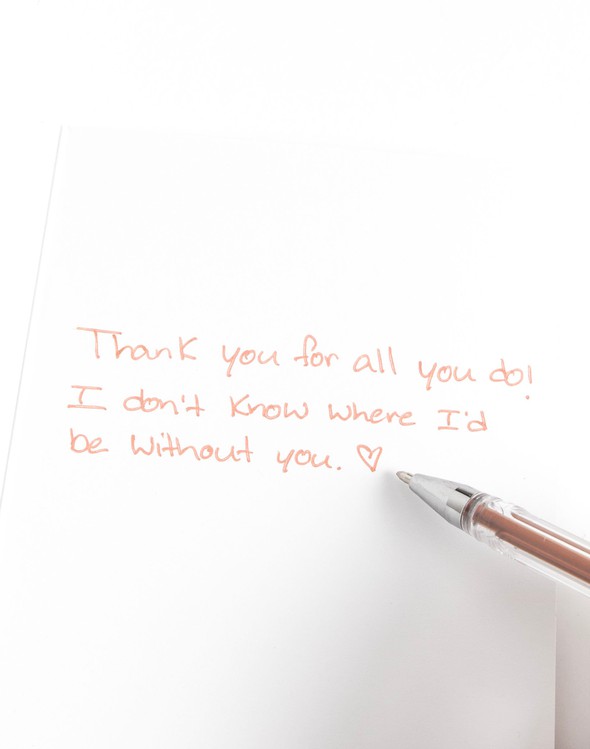 Thank you for all you do!
I don't know where I'd
be without you. ♡